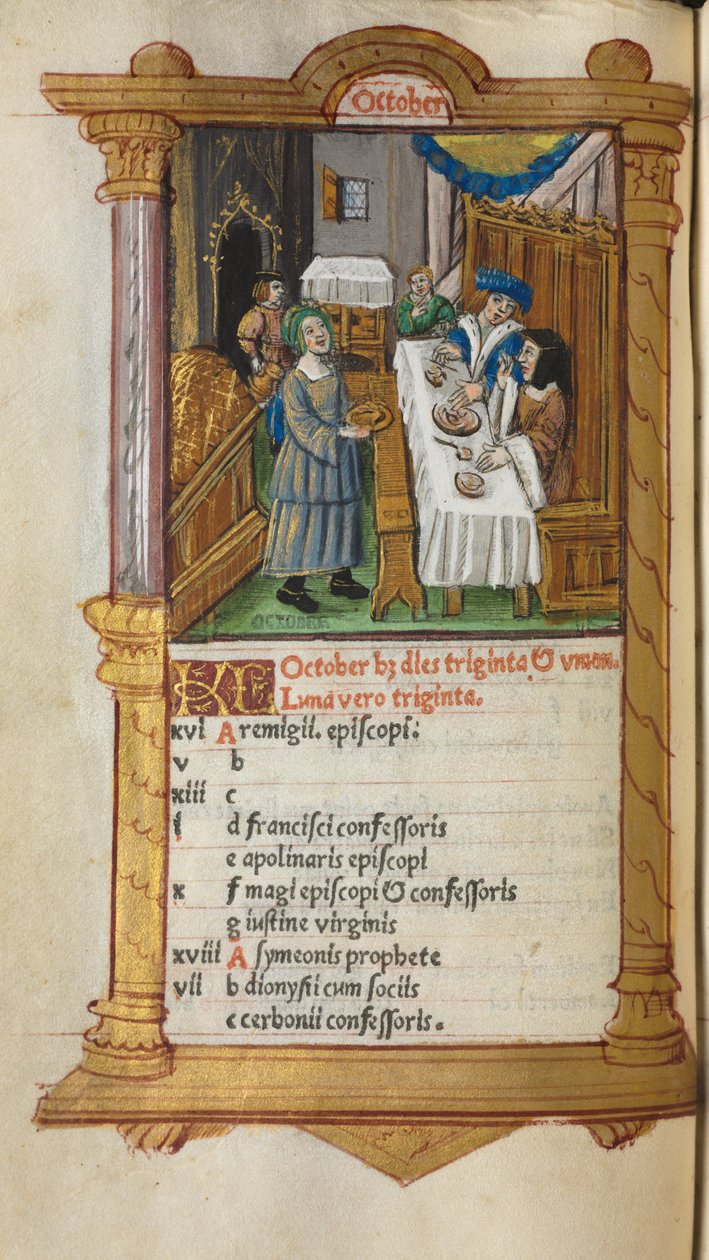 October
OCTOBRR
KL
October bꝫ dies triginta & vnum.
Luna vero triginta.
xvi A remigii. episcopi:
v b
xiii c
i d francisci confessoris
e apolinaris episcopi
x f magi episcopi & confessoris
g iustine virginis
xviii A symeonis prophete
vii b dionysii cum sociis
c cerbonii confessoris.